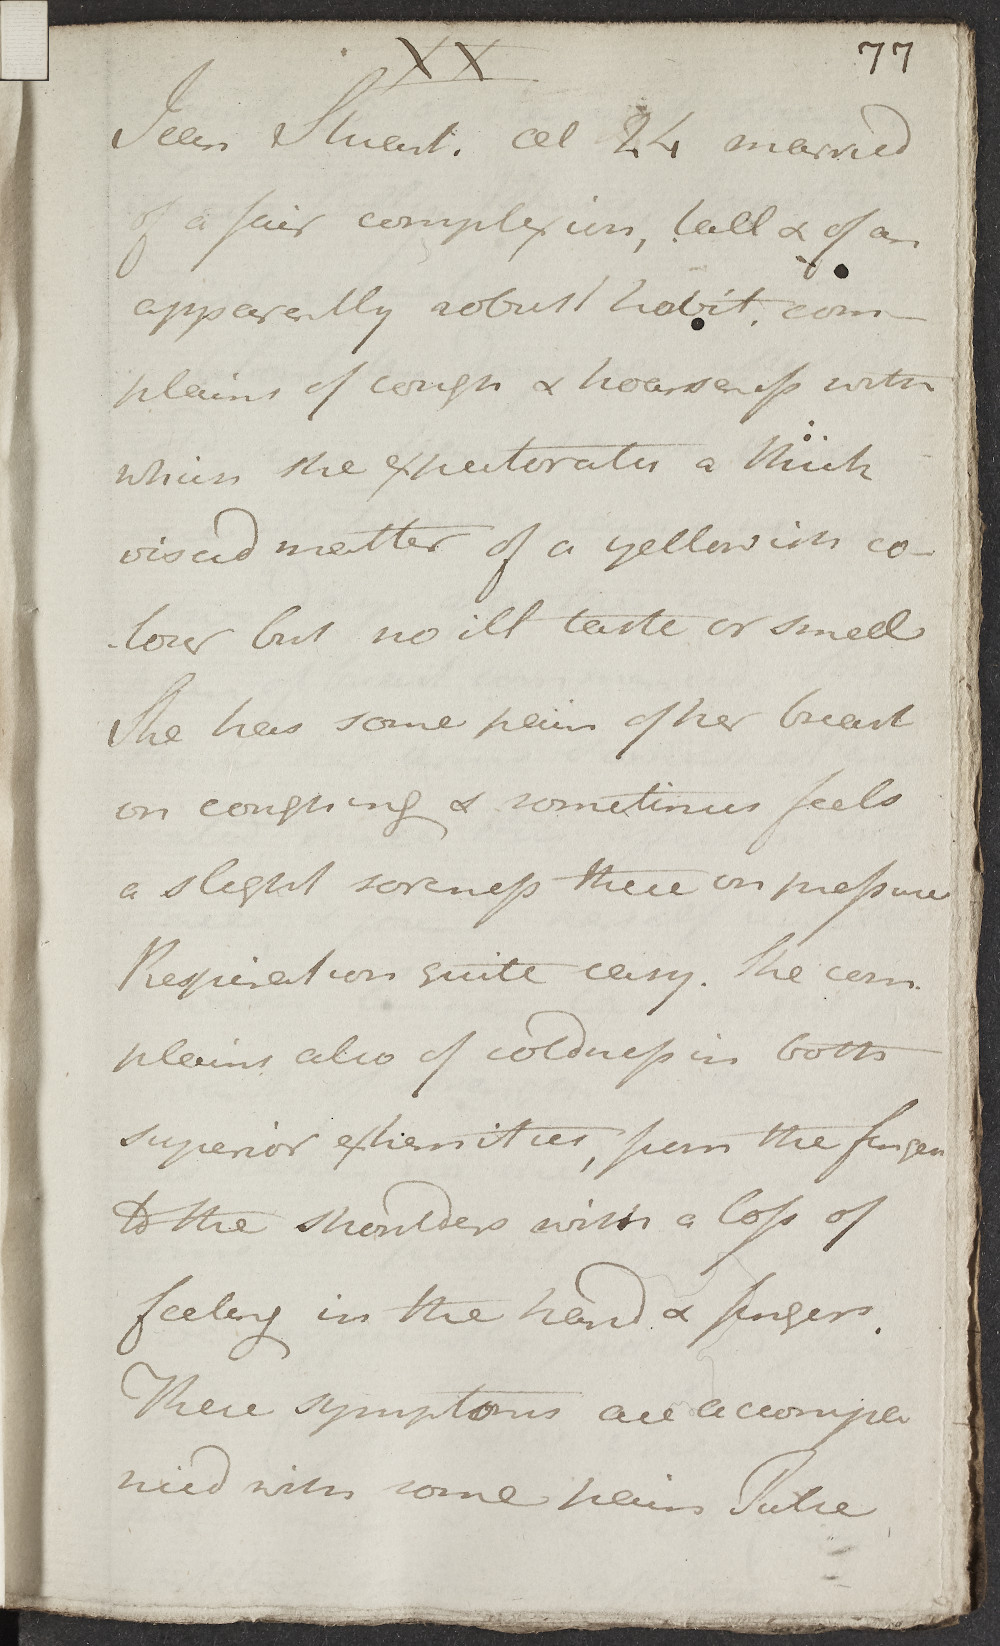 XX
77
Jean Stuart. æt 24 married
of a fair complexion, tall & of an
apparently robust habit. com-
plains of cough & hoarseness with
which she expectorates a thick
viscid matter of a yellowish co-
-lour but no ill taste or smell
She has some pain of her breast
on coughing & sometimes feels
a slight soreness there on pressure
Respiration quite easy. She com
plains also of coldness in both
superior extremities, from the fingers
to the shoulders with a loss of
feeling in the hand & fingers.
These symptoms are accompa
nied with some pain Pulse